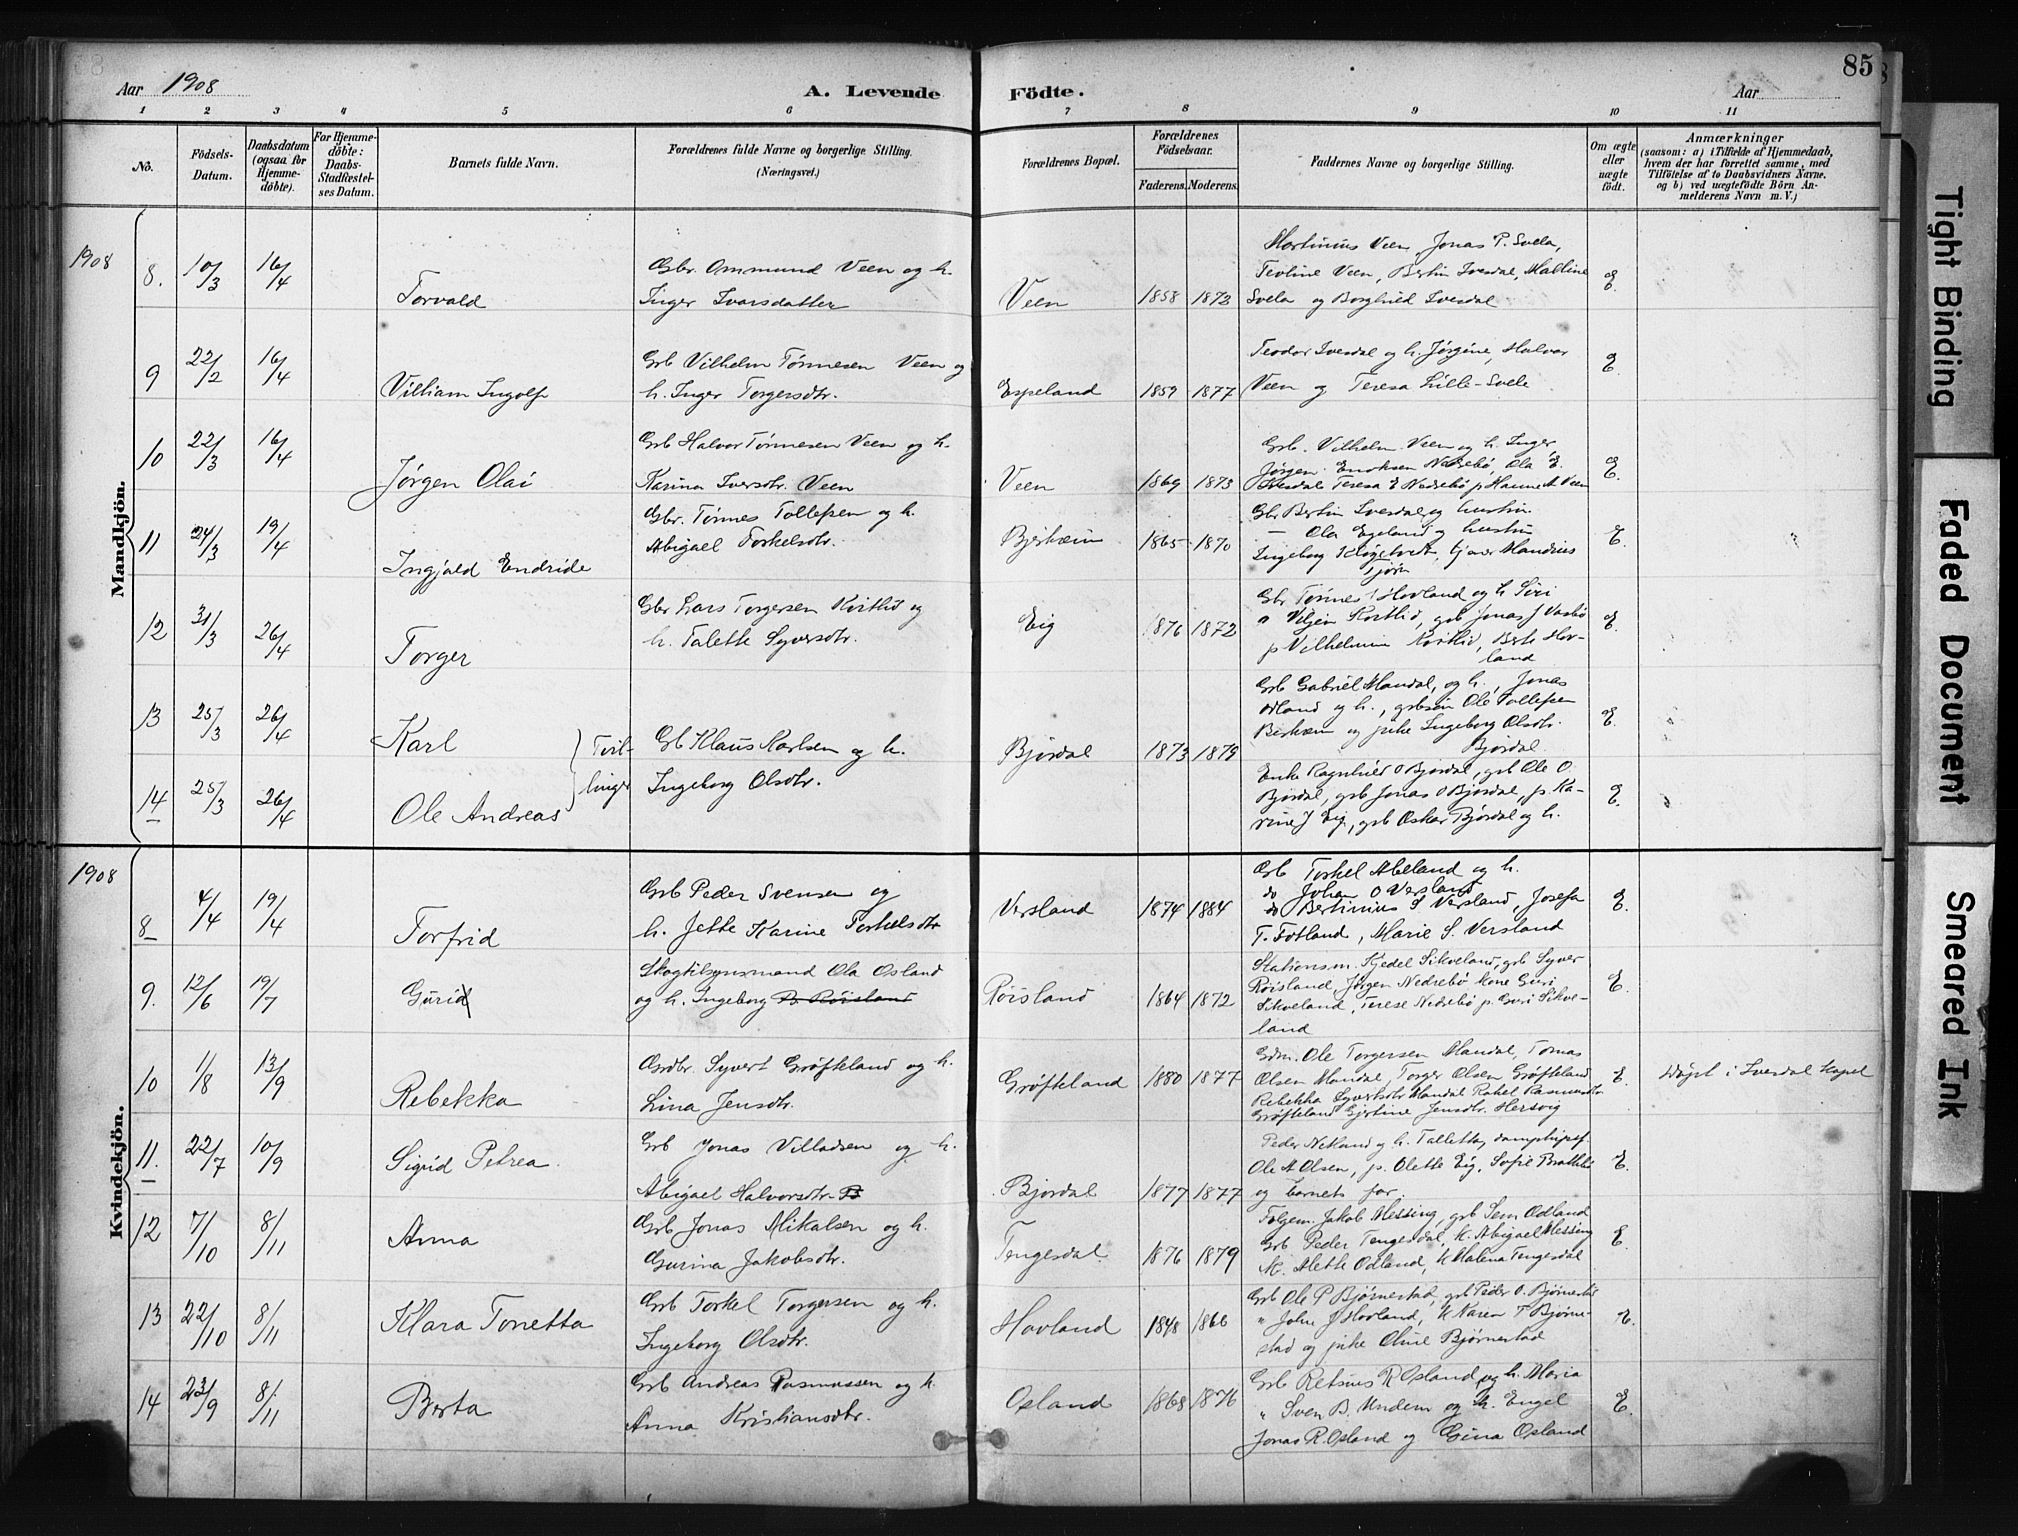 85
Aar 1908
A. Levende
Födte.
Aar
1 2 3 4 5 6 7 8 9 10 11
No.
Födsels-Datum.
Daabsdatum (ogsaa for Hjemme-döbte).
For Hjemme-döbte: Daabs-Stadfæstel-ses Datum.
Barnets fulde Navn.
Forældrenes fulde Navne og borgerlige Stilling.
(Næringsvei.)
Forældrenes Bopæl.
Forældrenes Födselsaar.
Faderens. Moderens.
Faddernes Navne og borgerlige Stilling.
Om ægte eller uægte födt.
Anmærkninger
(saasom: a) i Tilfælde af Hjemmedaab,
hvem der har forrettet samme, med
Tilföielse af to Daabsvidners Navne.
og b) ved uægtefödte Börn An-
melderens Navn m. V.)
Mandkjön.
1908
8. 10/3 16/4 Torvald
Gbr. Ommund Veen og h.
Inger Ivarsdatter
Veen 1858 1873
Martinius Veen, Jonas P. Svela,
Teoline Veen, Bertin Ivesdal, Maltine
Svela og Borghild Ivesdal
E.
9 22/2 16/4 Villiam Ingolf
Grb Vilhelm Tønnesen Veen og
h. Inger Torgersdtr.
Espeland 1859 1877
Teodor Ivesdal og h. Jørgine, Halvor
Veen og Teresa Lille-Svele
E.
10 22/3 16/4 Jørgen Olai
Grb Halvor Tønnesen Veen og h.
Karina Iversdtr. Veen
Veen 1869 1873
Grb. Vilhelm Veen og h. Inger
Jørgen Enoksen Nedrebø, Ola E.
Ivesdal Teresa E Nedrebø p Hanne A Veen
E.
11 24/3 19/4 Ingjald Endride
Gbr. Tønnes Tollefsen og h.
Abigael Torkelsdtr.
Bjerkreim 1865 1870
Gbr Bertin Ivesdal og hustru
— Ola Egeland og hustru
Ingeborg Høgstvedt, tj over Mandrius
Tjørn
E.
12 31/3 26/4 Torger
Gbr Lars Torgersen Kvitlid og
h. Talette Syversdtr.
Eig 1876 1872
Gbr Tønnes Hovland og h Siri
" Viljen Kvitlid, grb Jonas J Vasbø
p Vilhelmine Kvitlid, Berte Hov-
land
E.
13 25/3 26/4 Karl
} Tvil-
linger
Grb Klaus Karlsen og h.
Ingeborg Olsdtr.
Bjørdal 1873 1879
Grb Gabriel Mandal, og h., Jonas
Odland og h., grbsøn Ole Tollefsen
Birkrem og pike Ingeborg Olsdtr.
Bjørdal
E.
14 25/3 26/4 Ole Andreas
Enke Ragnhild O Bjørdal, grb Ole O.
Bjørdal, grb Jonas O Bjørdal, p Ka-
rine J Eig, grb Oskar Bjørdal og h.
E.
Kvindekjön.
1908
8 4/4 19/4 Torfrid
Grb Peder Svensen og
h. Jette Karine Torkelsdtr
Versland 1874 1884
Grb Torkel Abeland og h.
do Johan O Versland
do Bertinius S Versland, Josefa
T. Fotland, Marie S. Versland
E.
9. 12/6 19/7 Gurid
Skogtilsynsmand Ola Osland
og h. Ingeborg B. Røisland
Røisland 1864 1872
Stationsm. Kjedel Sikveland, grb Syver
Røisland, Jørgen Nedrebø Kone Guri
Sikveland, Terese Nedrebø p. Guri Sikve-
land
E.
10 1/8 13/9 Rebekka
Grdbr. Syvert Grøfteland og h.
Lina Jensdtr.
Grøfteland 1880 1877
Gdm. Ole Torgersen Mandal, Tomas
Olsen Mandal, Torger Olsen Grøfteland
Rebekka Syvertsdtr Mandal Rakel Rasmusdtr.
Grøfteland Gjertine Jensdtr. Hersvig
E.
Døpt i Ivesdal Kapel
11. 22/7 10/9 Sigrid Petrea
Grb Jonas Villadsen og h.
Abigael Halvorsdtr. B
Bjordal 1877 1877
Peder Netland og h. Talletta, damptripsf.
Ole A Olsen, p. Olette Eig, Sofie Bratthei
og barnets far.
E.
12 7/10 8/11 Anna
Grb Jonas Mikalsen og h.
Gurina Jakobsdtr.
Tengesdal 1876 1879
Følgem. Jakob Messing, grb Sem Odland
Grb Peder Tengesdal, k. Abigael Messing
K. Alette Odland, k Malena Tengesdal
E.
13 22/10 8/11 Klara Tonetta
Grb Torkel Torgersen og h.
Ingeborg Olsdtr.
Hovland 1848 1866
Grb Ole P Bjørnestad, grb Peder O. Bjørnestad
" John J Hovland, k Karen T Bjørne-
stad og pike Oline Bjørnestad
E.
14 23/9 8/11 Berta
Grb Andreas Rasmussen og h
Anna Kristiansdtr.
Osland 1868 1876
Grb Retsius R Osland og h. Maria
" Sven B. Undem og h. Engel
Jonas R. Osland og Gina Osland
E.
Tight Binding
Faded Document
Smeared Ink